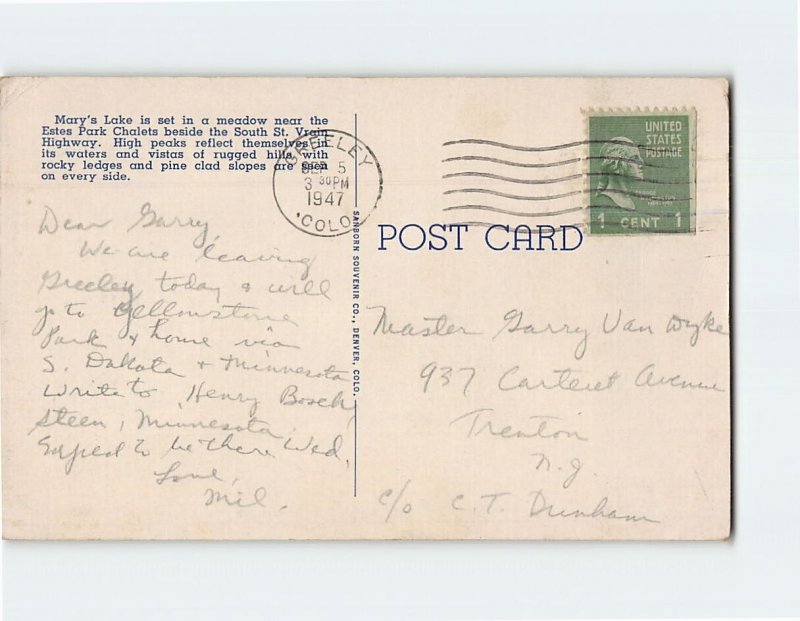 Mary's Lake is set in a meadow near the
Estes Park Chalets beside the South St. Vrain
Highway. High peaks reflect themselves in
its waters and vistas of rugged hills with
rocky ledges and pine clad slopes are seen
on every side.
GREELEY
SEP 5
3 30 PM
1947
COLO.
UNITED
STATES
POSTAGE
1 CENT 1
POST CARD
SANBORN SOUVENIR CO., DENVER, COLO.
Dear Garry,
We are leaving
Greeley today & will
go to Yellowstone
Park & home via
S. Dakota & Minnesota
Write to Henry Bosch,
Steen, Minnesota.
Expect to be there Wed.
Love,
Mil.
Master Garry Van Wyke
937 Carteret Avenue
Trenton
N.J.
c/o C.T. Dunham